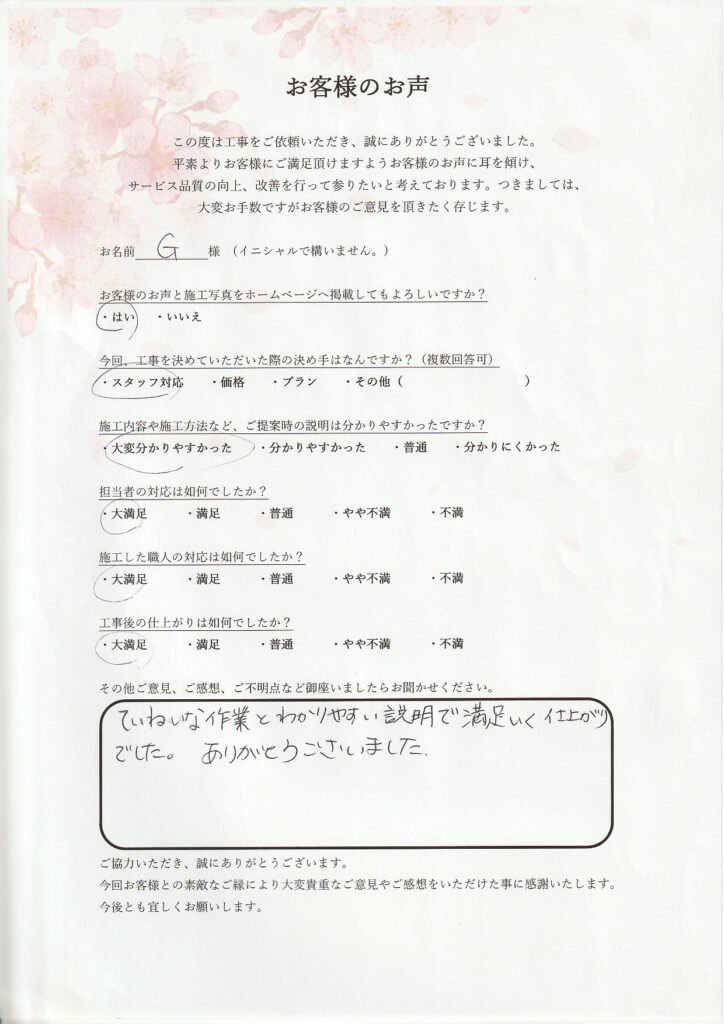 お客様のお声
この度は工事をご依頼いただき、誠にありがとうございました。
平素よりお客様にご満足頂けますようお客様のお声に耳を傾け、
サービス品質の向上、改善を行って参りたいと考えております。つきましては、
大変お手数ですがお客様のご意見を頂きたく存じます。
お名前 G 様 （イニシャルで構いません。）
お客様のお声と施工写真をホームページへ掲載してもよろしいですか？
・はい ・いいえ
今回、工事を決めていただいた際の決め手はなんですか？（複数回答可）
・スタッフ対応 ・価格 ・プラン ・その他（ ）
施工内容や施工方法など、ご提案時の説明は分かりやすかったですか？
・大変分かりやすかった ・分かりやすかった ・普通 ・分かりにくかった
担当者の対応は如何でしたか？
・大満足 ・満足 ・普通 ・やや不満 ・不満
施工した職人の対応は如何でしたか？
・大満足 ・満足 ・普通 ・やや不満 ・不満
工事後の仕上がりは如何でしたか？
・大満足 ・満足 ・普通 ・やや不満 ・不満
その他ご意見、ご感想、ご不明点など御座いましたらお聞かせください。
ていねいな作業とわかりやすい説明で満足いく仕上がり
でした。 ありがとうございました.
ご協力いただき、誠にありがとうございます。
今回お客様との素敵なご縁により大変貴重なご意見やご感想をいただけた事に感謝いたします。
今後とも宜しくお願いします。